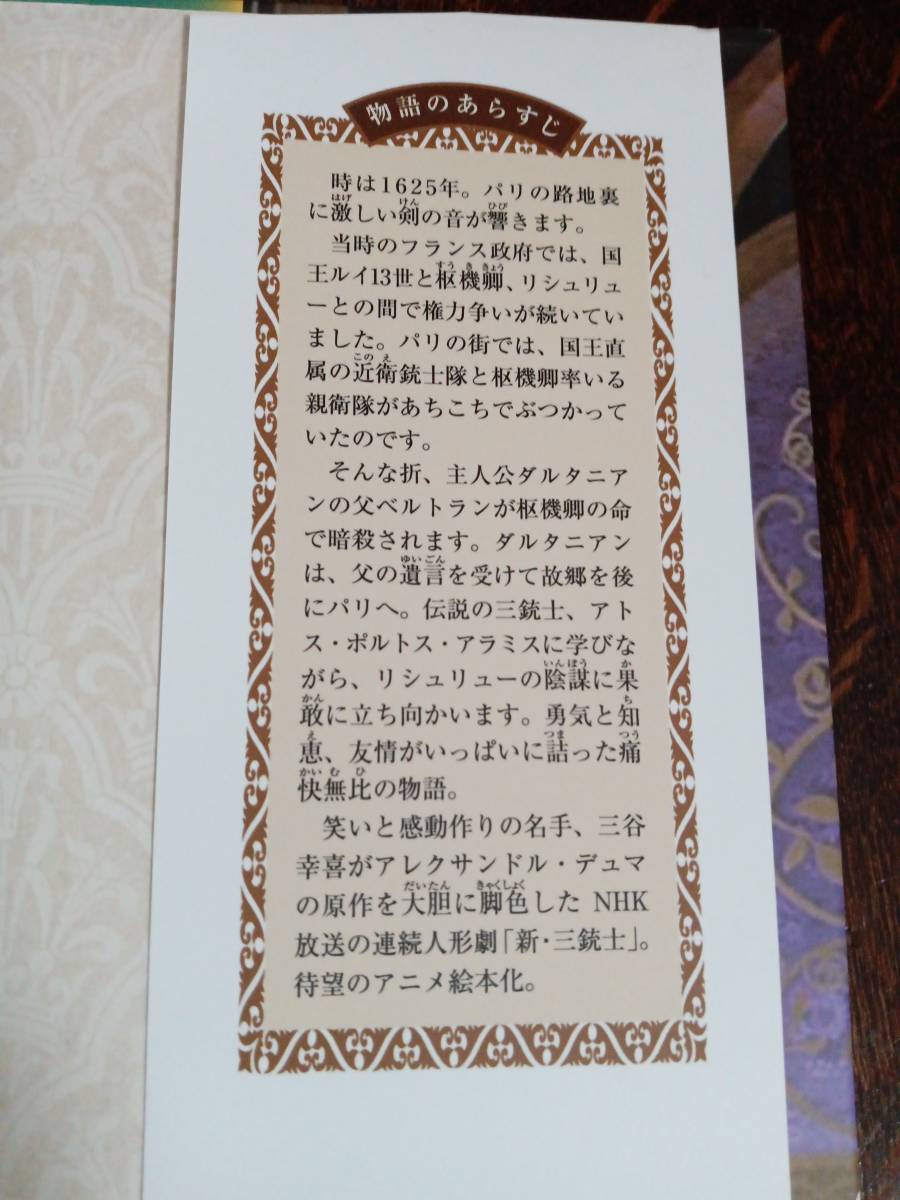 物語のあらすじ
時は1625年。パリの路地裏
に激しい剣の音が響きます。
当時のフランス政府では、国
王ルイ13世と枢機卿、リシュリュ
ーとの間で権力争いが続いてい
ました。パリの街では、国王直
属の近衛銃士隊と枢機卿率いる
親衛隊があちこちでぶつかって
いたのです。
そんな折、主人公ダルタニア
ンの父ベルトランが枢機卿の命
で暗殺されます。ダルタニアン
は、父の遺言を受けて故郷を後
にパリへ。伝説の三銃士、アト
ス・ポルトス・アラミスに学びな
がら、リシュリューの陰謀に果
敢に立ち向かいます。勇気と知
恵、友情がいっぱいに詰った痛
快無比の物語。
笑いと感動作りの名手、三谷
幸喜がアレクサンドル・デュマ
の原作を大胆に脚色した NHK
放送の連続人形劇「新・三銃士」。
待望のアニメ絵本化。